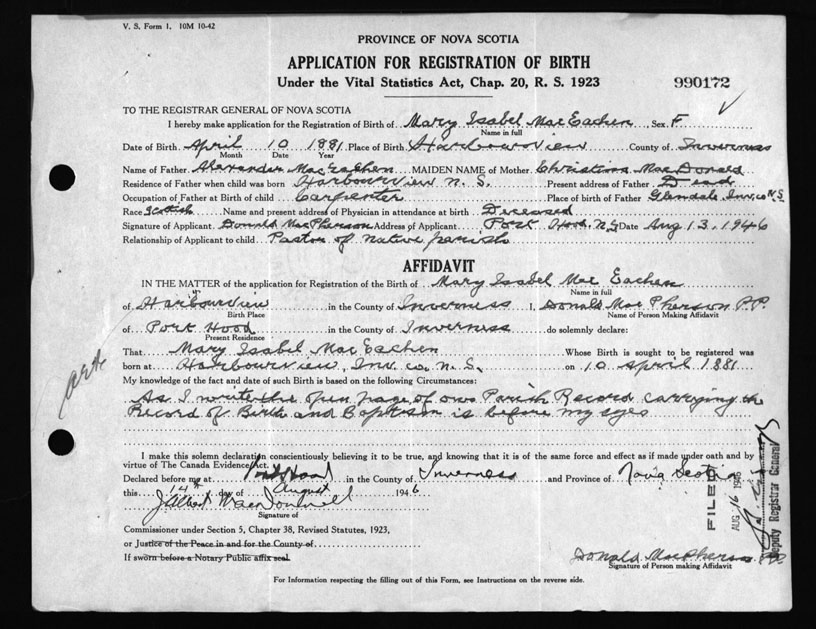 V. S. Form 1. 10M 10-42
PROVINCE OF NOVA SCOTIA
APPLICATION FOR REGISTRATION OF BIRTH
Under the Vital Statistics Act, Chap. 20, R. S. 1923
990172
TO THE REGISTRAR GENERAL OF NOVA SCOTIA
I hereby make application for the Registration of Birth of Mary Isabel MacEachen, Sex F
Name in full
Date of Birth April 10 1881 Place of Birth Harbourview County of Inverness
Month Date Year
Name of Father Alexander MacEachen MAIDEN NAME of Mother Christina MacDonald
Residence of Father when child was born Harbourview N. S. Present address of Father Dead
Occupation of Father at Birth of child Carpenter Place of birth of Father Glendale, Inv. co N.S
Race Scottish Name and present address of Physician in attendance at birth Deceased
Signature of Applicant Donald MacPherson Address of Applicant Port Hood, N.S Date Aug 13, 1946
Relationship of Applicant to child Pastor of native parish
AFFIDAVIT
IN THE MATTER of the application for Registration of the Birth of Mary Isabel Mac Eachen
Name in full
of Harbourview in the County of Inverness I, Donald Mac Pherson P.P.
Birth Place Name of Person Making Affidavit
of Port Hood in the County of Inverness do solemnly declare:
Present Residence
That Mary Isabel MacEachen Whose Birth is sought to be registered was
born at Harbourview, Inv. co. N. S. on 10 April 1881
My knowledge of the fact and date of such Birth is based on the following Circumstances:
As I write the open page of our Parish Record carrying the
Record of Birth and Baptism is before my eyes
I make this solemn declaration conscientiously believing it to be true, and knowing that it is of the same force and effect as if made under oath and by
virtue of The Canada Evidence Act.
Declared before me at Port Hood in the County of Inverness and Province of Nova Scotia
this 14th day of August 1946
J Albert Macdonnell
Signature of
Commissioner under Section 5, Chapter 38, Revised Statutes, 1923,
or Justice of the Peace in and for the County of
If sworn before a Notary Public affix seal
FILED
AUG 16 1946
Deputy Registrar General
Donald MacPherson
Signature of Person making Affidavit
For Information respecting the filling out of this Form, see Instructions on the reverse side.